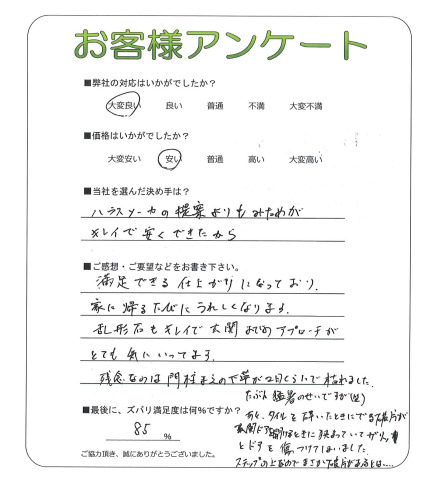 お客様アンケート
■弊社の対応はいかがでしたか？
大変良い 良い 普通 不満 大変不満
■価格はいかがでしたか？
大変安い 安い 普通 高い 大変高い
■当社を選んだ決め手は？
ハウスメーカの提案よりもみためが
キレイで安くできたから
■ご感想・ご要望などをお書き下さい。
満足できる仕上がりになっており、
家に帰るたびにうれしくなります。
乱形石もキレイで玄関までのアプローチが
とても気にいってます。
残念なのは門柱まえの草が2日くらいで枯れました。
たぶん猛暑のせいですが(笑)
あと、タイルを砕いたときにでる破片が
玄関ドアを開けるときに挟まっていてガリッ
とドアを傷つけてしまいました。
ステップの上なのでまさか破片があるとは....
■最後に、ズバリ満足度は何%ですか？
85 %
ご協力頂き、誠にありがとうございました。